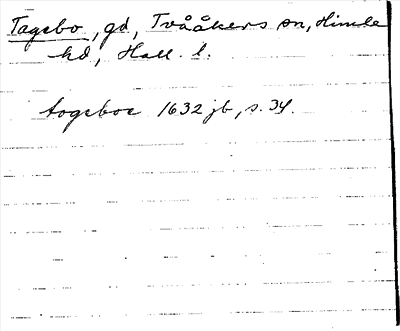 Tagebo, gd, Tvååkers sn, Himle
hd, Hall. l.
togeboe 1632 jb, s. 34.